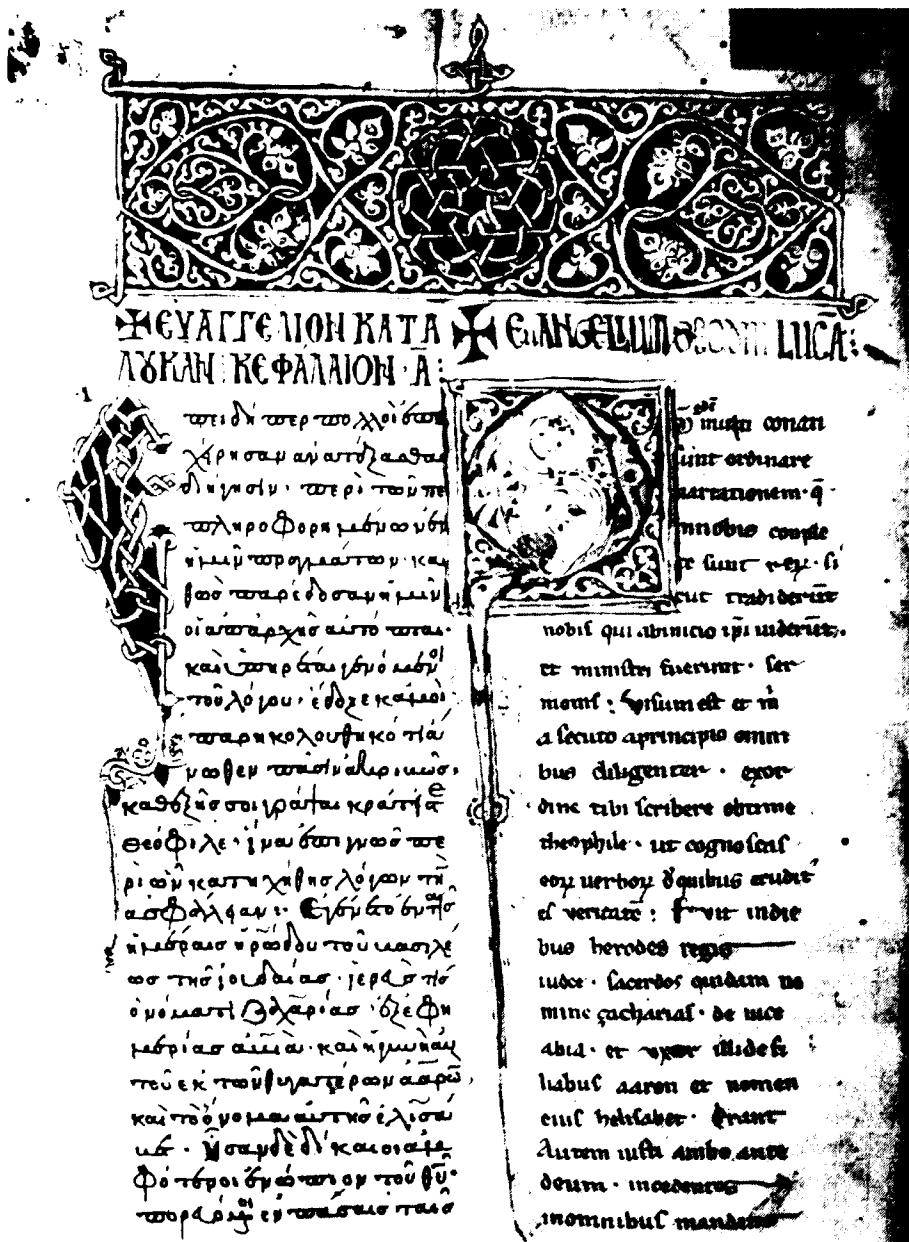 ✠ ΕΥΑΓΓΕΛΙΟΝ ΚΑΤΑ
ΛȢΚΑΝ ΚΕΦΑΛΑΙΟΝ Α̅:
πειδήπερ πολλοὶ ἐπε
χείρησαν ἀνατάξασθαι
διήγησιν· περὶ τῶν πε
πληροφορημένων ἐν
ἡμῖν πραγμάτων· κα
θὼς παρέδοσαν ἡμῖν
οἱ ἀπαρχῆς αὐτόπται·
καὶ ὑπηρέται γενόμενοι
τοῦ λόγου· ἔδοξε κἀμοὶ
παρηκολουθηκότι ἄ
νωθεν πᾶσιν ἀκριβῶς·
καθεξῆς σοι γράψαι κράτιστε
θεόφιλε· ἵνα ἐπιγνῶς πε
ρὶ ὧν κατηχήθης λόγων τὴν
ἀσφάλειαν: Ἐγένετο ἐν ταῖς
ἡμέραις ἡρώδου τοῦ βασιλέ
ως τῆς ἰουδαίας· ἱερεύς τις
ὀνόματι ζαχαρίας· ἐξ ἐφη
μερίας ἀβιά· καὶ ἡ γυνὴ αὐ
τοῦ ἐκ τῶν θυγατέρων ἀαρώ̅
καὶ τὸ ὄνομα αὐτῆς ἐλισά
βετ· ἦσαν δὲ δίκαιοι ἀμ
φότεροι ἐνώπιον τοῦ θ̅υ̅·
πορευόμενοι ἐν πάσαις ταῖς
✠ EUANGELIUM SECUNDUM LUCA:
multi conati
sunt ordinare
narrationem· q̅
innobis comple
te sunt reꝝ· si
cut tradideru̅t
nobis qui abinicio ip̅i uideru̅t·
et ministri fuerunt· ser
monis: visum est et m̅
asecuto aprincipio omni
bus diligenter· exor
dine tibi scribere obtime
theophile· ut cognoscas
eoꝝ uerboꝝ d̅quibus erudit᾽
es veritate̅: Fuit indie
bus herodes regis
iudee· sacerdos quidam no
mine çacharias· de uice
abia· et uxor illi defi
liabus aaron et nomen
eius helisabet· Erant
Autem iusti ambo ante
deum· incedentes
inomnibus mandatis